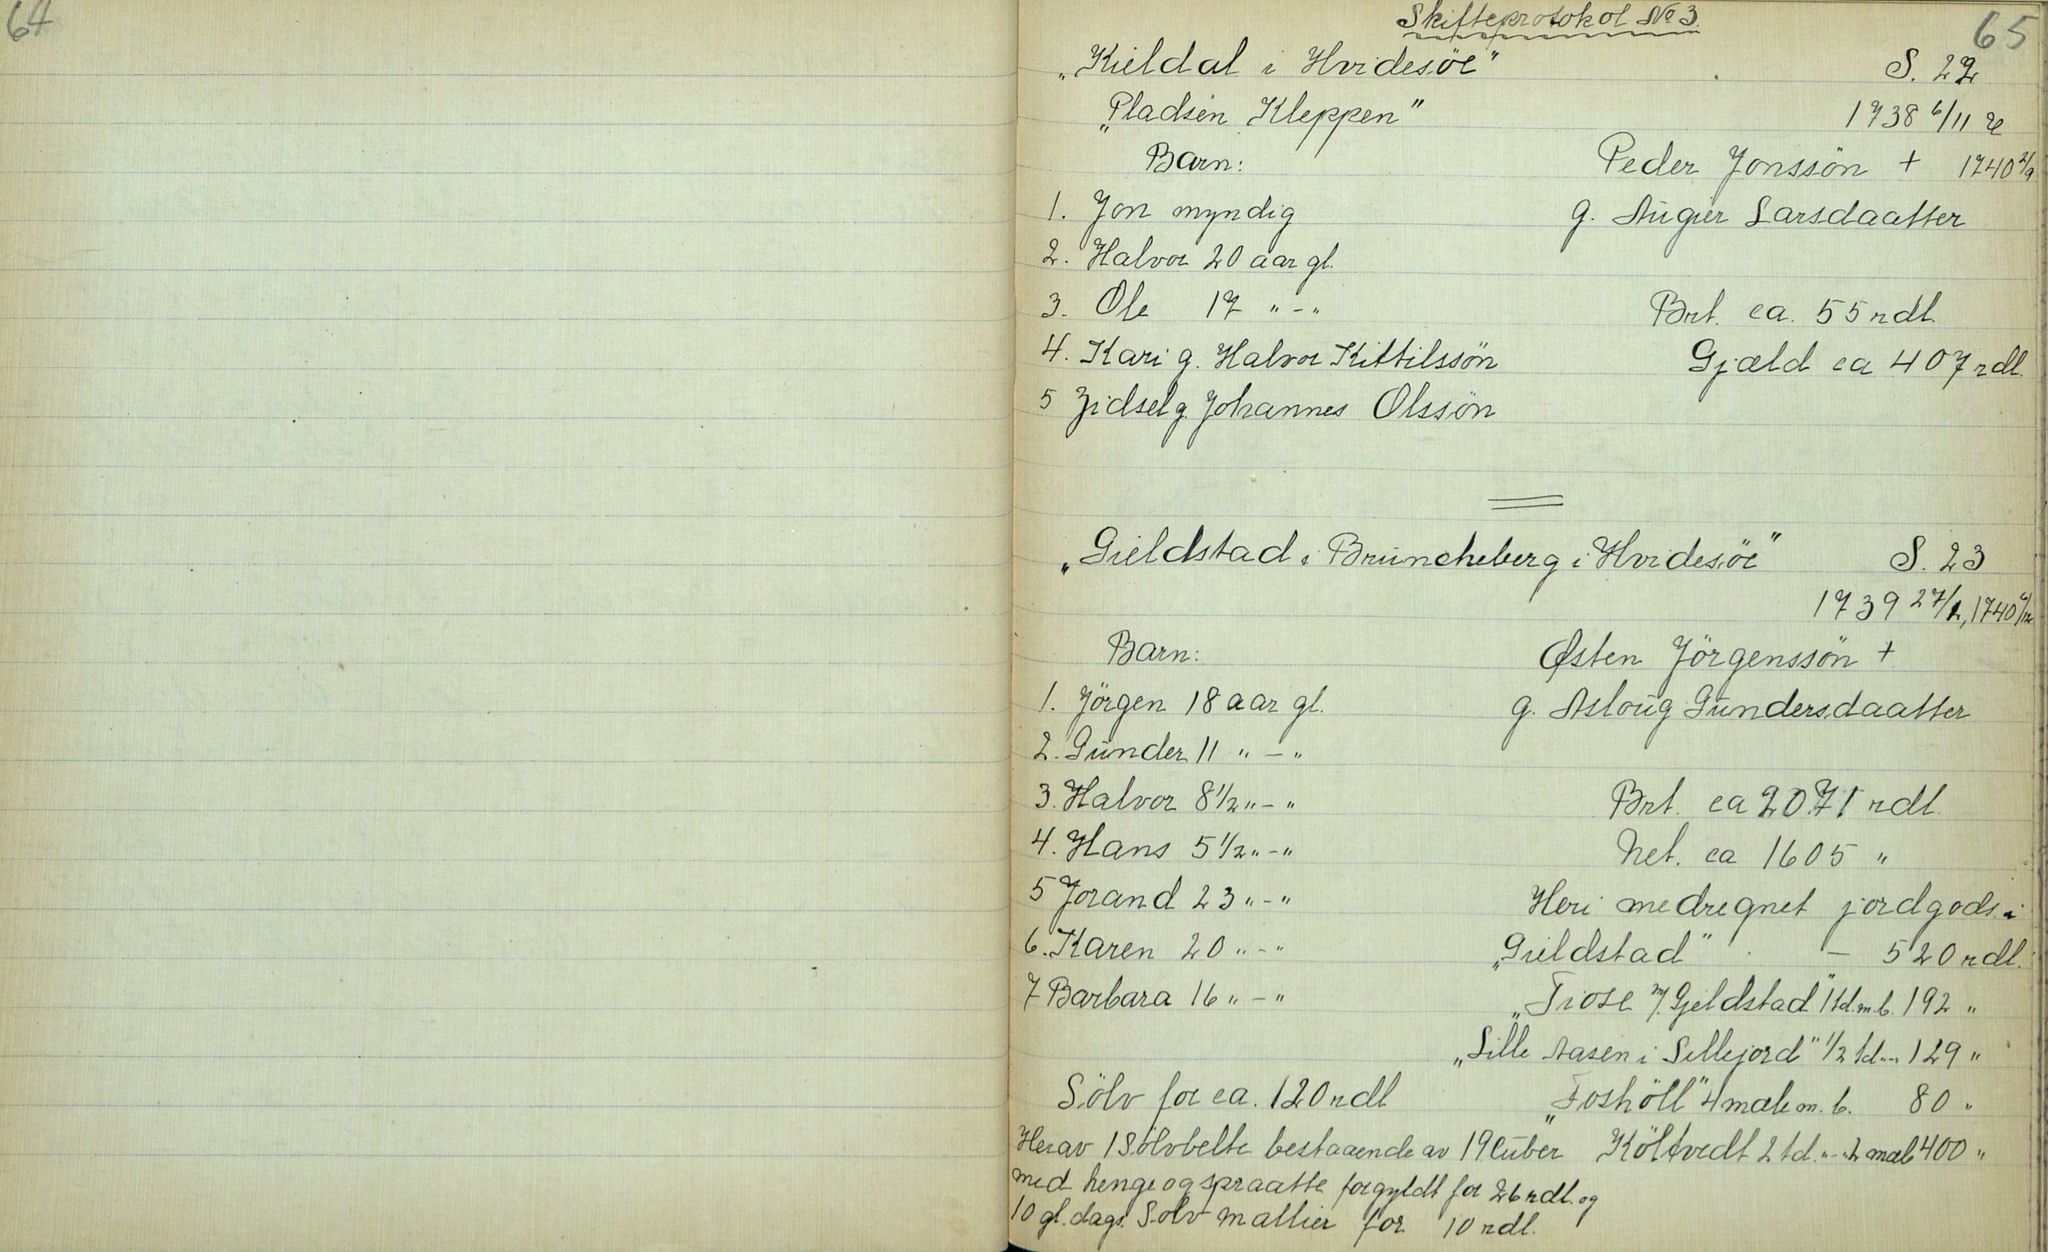 64
65
Skifteprotokol No 3.
„Kieldal i Hvidesöe" S. 22
„Pladsen Kleppen" 1738 6/11 &
Barn: Peder Jonssön + 1740 2/9
1. Jon myndig g. Aúgier Larsdaatter
2. Halvor 20 aar gl.
3. Ole 17 " - " Brt. ca. 55 rdl.
4. Kari g. Halvor Kittilssön Gjæld ca 407 rdl.
5 Zidsel g. Johannes Olssön
„Gieldstad i Brúncheberg i Hvidesöe" S. 23
1739 27/2, 1740
Barn: Østen Jörgenssön +
1. Jörgen 18 aar gl. g. Asloúg Gúndersdaatter
2. Gúnder 11 " - "
3. Halvor 8 1/2 " - " Brt. ca 2071 rdl.
4. Hans 5 1/2 " - " Net. ca 1605 "
5 Jorand 23 " - " Heri medregnet jordgods i
6. Karen 20 " - " „Gieldstad" - 520 rdl.
7 Barbara 16 " - " „Tiose m/ Gjeldstad" 1 td. m. b. 192 "
„Lille Aasen i Sillejord" 1/2 td. " - " 129 "
Sölv for ca. 120 rdl „Foshöll" 4 male m. b. 80 "
Herav 1 Sölvbelte bestaaende av 19 Cúber Költvedt 2 td. " - " 2 male 400 "
med henge og spraatte forgyldt for 26 rdl. og
10 gl. dags. Sölv mallier for 10 rdl.